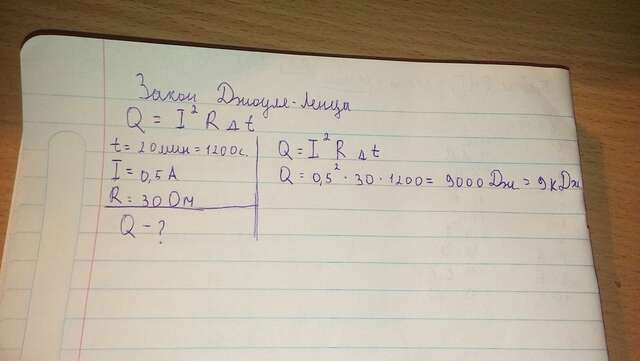 Закон Джоуля-Ленца
Q = I² R Δt
t = 20мин = 1200с.
I = 0,5А
R = 30 Ом
Q - ?
Q = I² R Δt
Q = 0,5² · 30 · 1200 = 9000 Дж = 9кДж